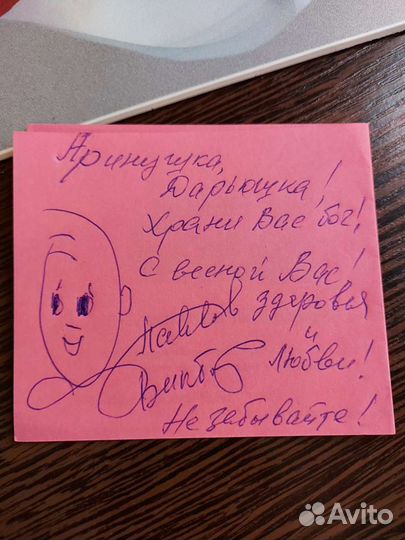 Аринушка,
Дарьюшка!
Храни Вас бог!
С весной Вас!
Здоровья
и
Любви!
Павлов
Виктор
Не забывайте!
Avito